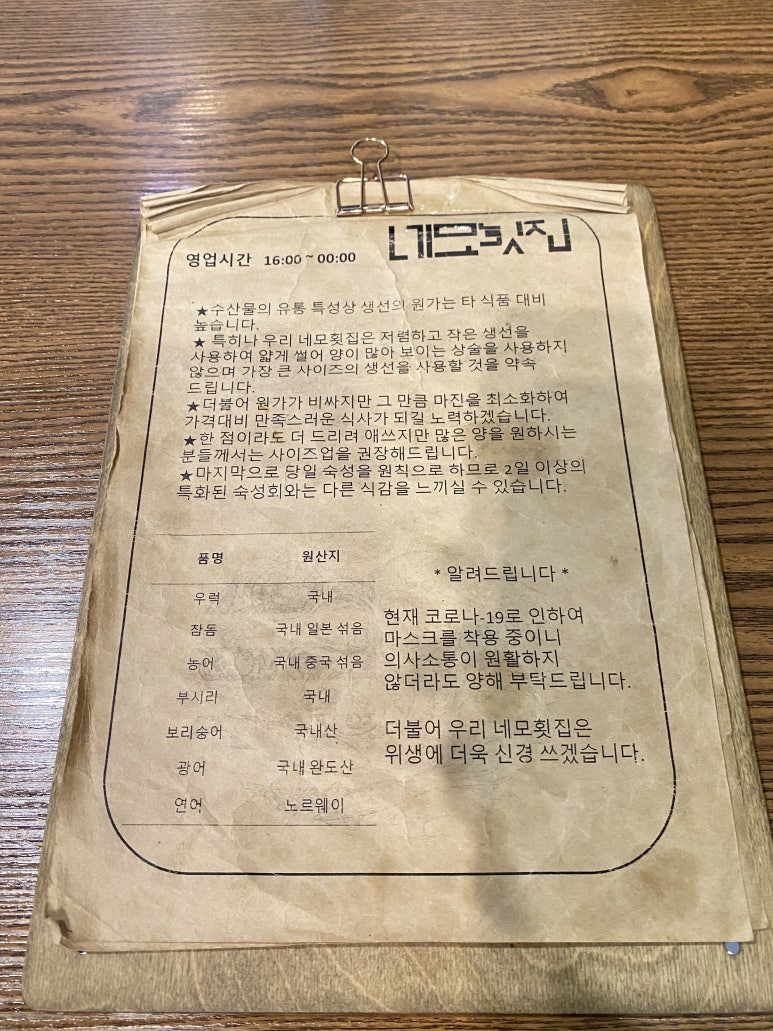 네모횟집
영업시간 16:00 ~ 00:00
★수산물의 유통 특성상 생선의 원가는 타 식품 대비
높습니다.
★ 특히나 우리 네모횟집은 저렴하고 작은 생선을
사용하여 얇게 썰어 양이 많아 보이는 상술을 사용하지
않으며 가장 큰 사이즈의 생선을 사용할 것을 약속
드립니다.
★더불어 원가가 비싸지만 그 만큼 마진을 최소화하여
가격대비 만족스러운 식사가 되길 노력하겠습니다.
★한 점이라도 더 드리려 애쓰지만 많은 양을 원하시는
분들께서는 사이즈업을 권장해드립니다.
★마지막으로 당일 숙성을 원칙으로 하므로 2일 이상의
특화된 숙성회와는 다른 식감을 느끼실 수 있습니다.
품명 원산지
우럭 국내
참돔 국내 일본 섞음
농어 국내 중국 섞음
부시리 국내
보리숭어 국내산
광어 국내 완도산
연어 노르웨이
* 알려드립니다 *
현재 코로나-19로 인하여
마스크를 착용 중이니
의사소통이 원활하지
않더라도 양해 부탁드립니다.
더불어 우리 네모횟집은
위생에 더욱 신경 쓰겠습니다.